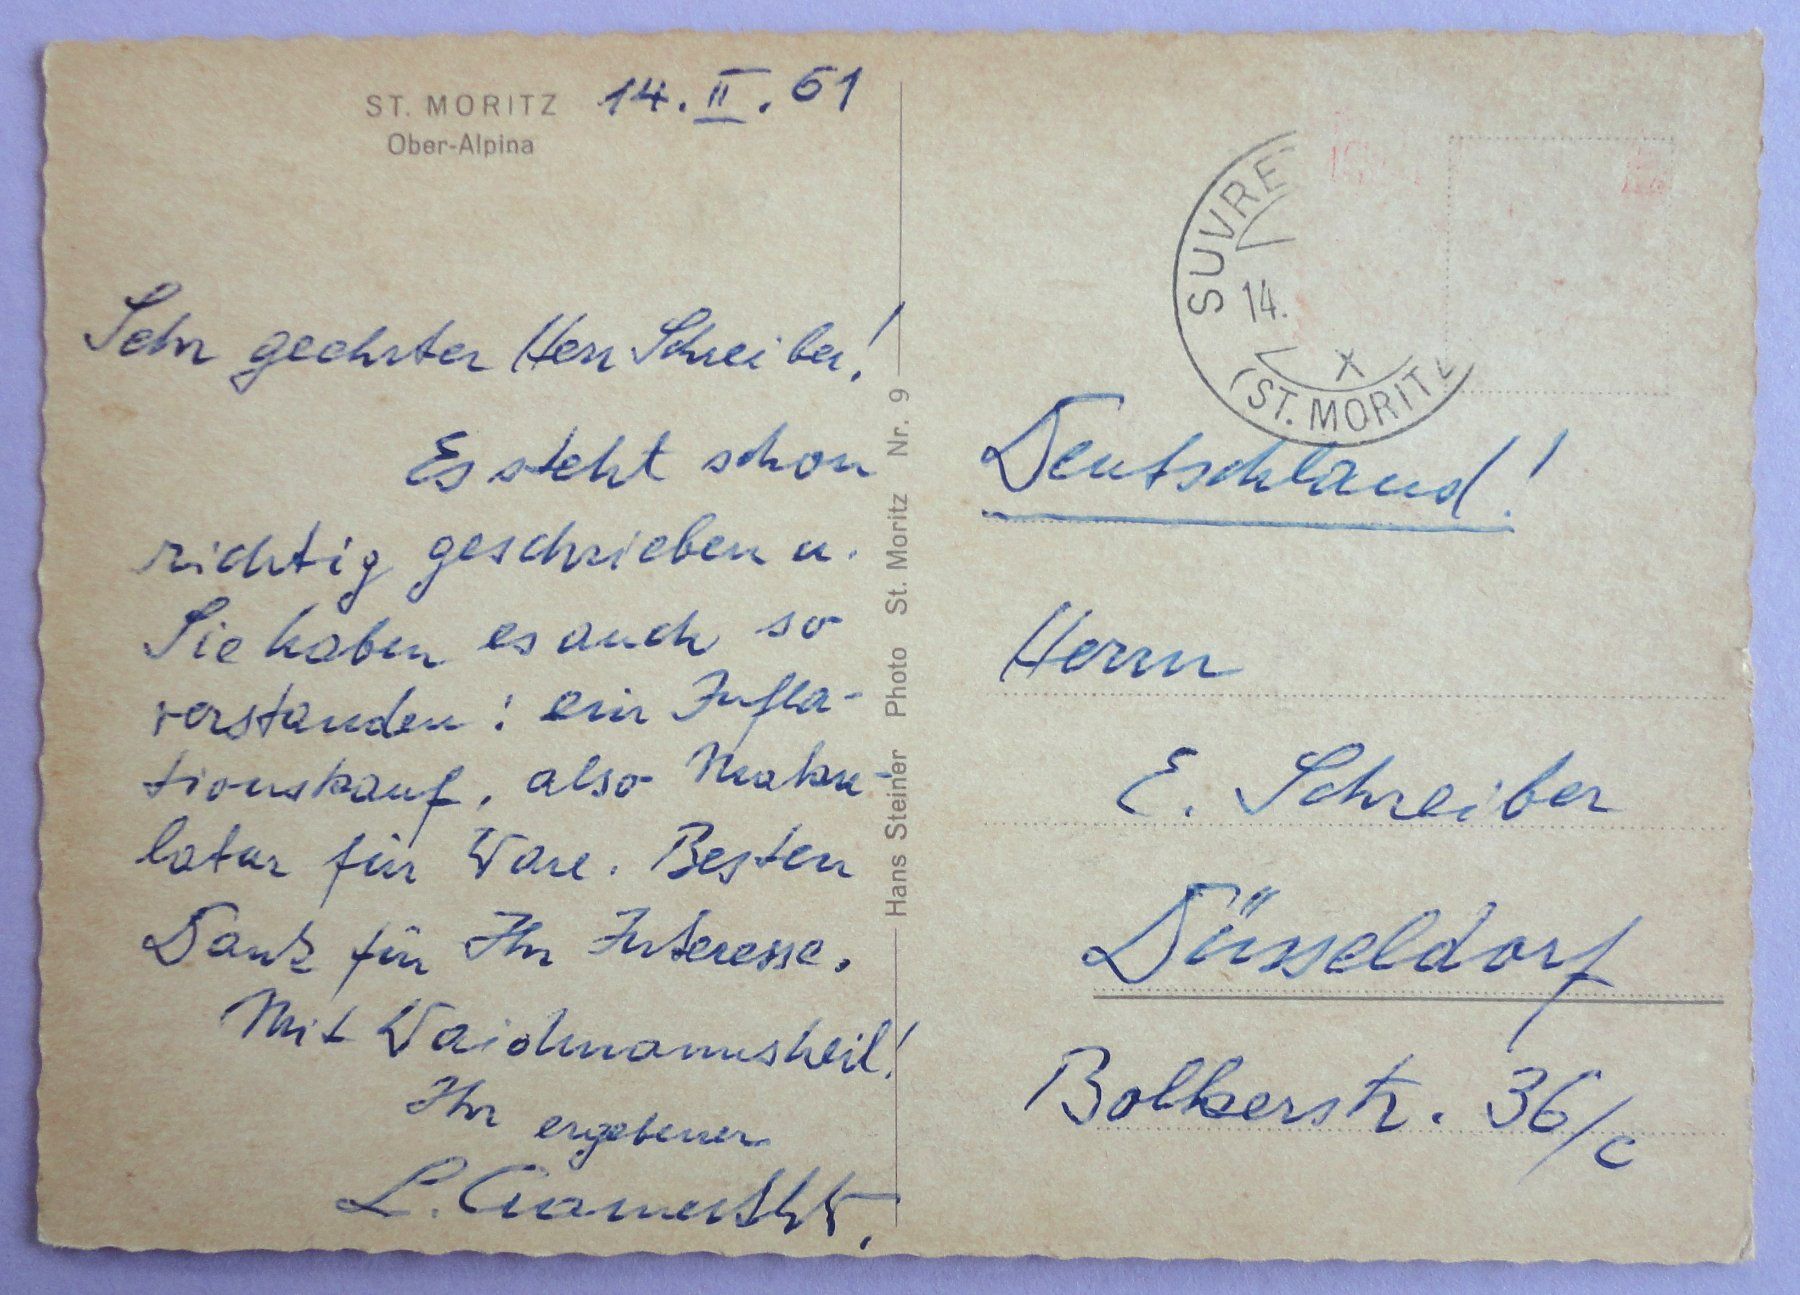 ST. MORITZ
Ober-Alpina
14. II. 61
Sehr geehrter Herr Schreiber!
Es steht schon
richtig geschrieben u.
Sie haben es auch so
verstanden: ein Infla-
tionskauf, also Maku-
latur für Ware. Besten
Dank für Ihr Interesse.
Mit Waidmannsheil!
Ihr ergebener
L.
Hans Steiner Photo St. Moritz Nr. 9
SUVRE
14.
X
(ST. MORITZ
Deutschland!
Herrn
E. Schreiber
Düsseldorf
Bolkerstr. 36/c